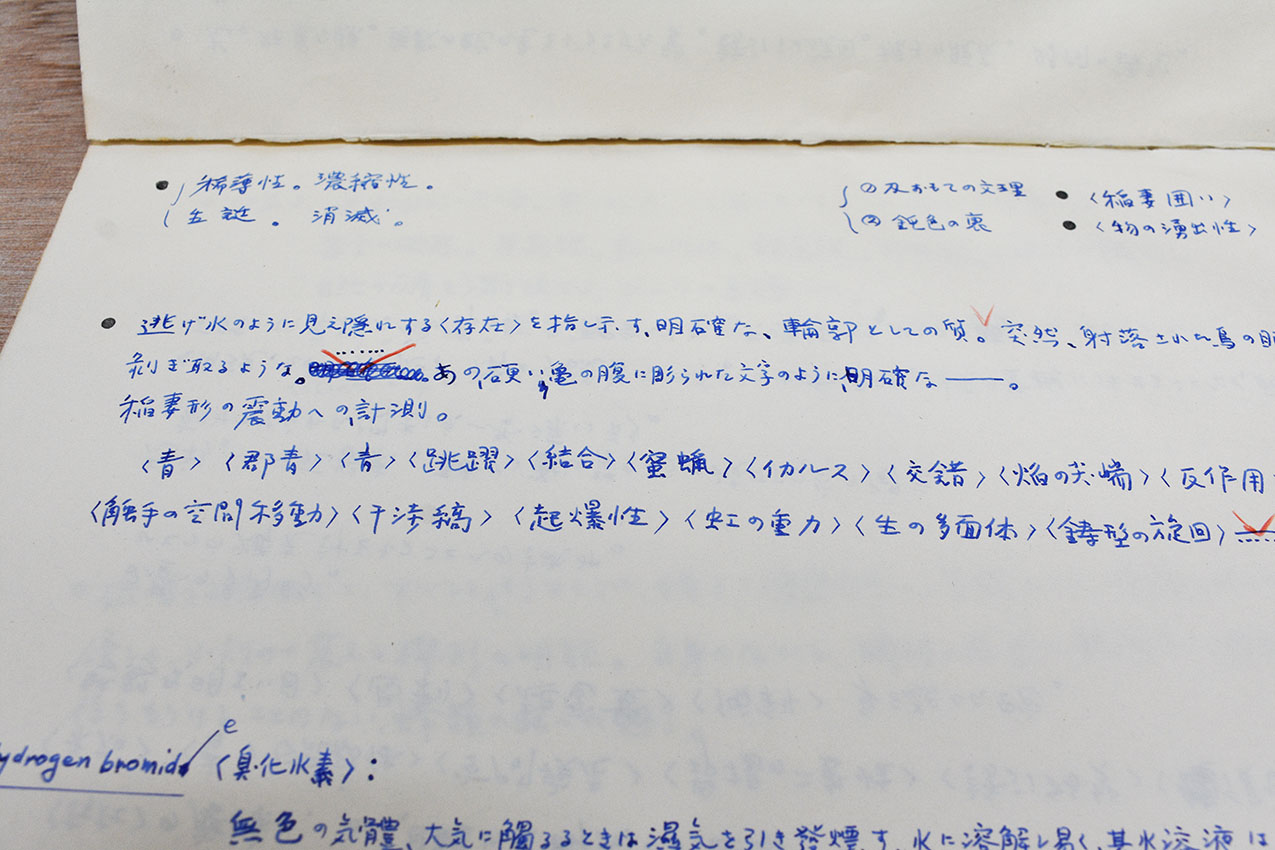 稀薄性。濃縮性。
生誕。消滅。
① 及かもての文理
② 鈍色の裏
〈稲妻囲い〉
〈物の湧出性〉
逃げ水のように見え隠れする〈存在〉を指し示す、明確な、輪郭としての質。突然、射落された鳥の眼
剥ぎ取るような。あの、硬い、亀の腹に彫られた文字のように、明確な――。
稲妻形の震動への計測。
〈青〉〈郡青〉〈青〉〈跳躍〉〈結合〉〈蜜蝋〉〈イカルス〉〈交錯〉〈焔の尖端〉〈反作用
〈触手の空間移動〉〈干渉稿〉〈起爆性〉〈虹の重力〉〈生の多面体〉〈鋳型の旋回〉
ydrogen bromide〈臭化水素〉:
無色の気體、大気に觸るるときは濕気を引き發煙す、水に溶解し易く、其水溶液は